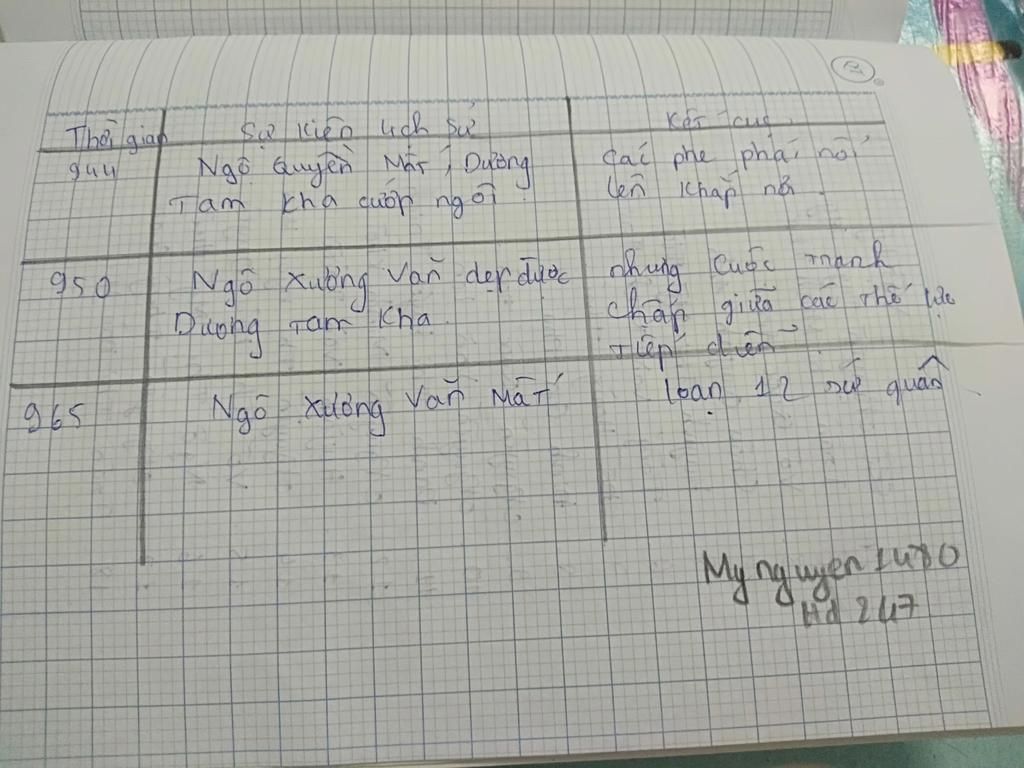 2
Thời gian Sự kiện lịch sử Kết cục
944 Ngô Quyền Mất, Dương Các phe phái nổi
Tam kha cướp ngôi lên khắp nơi
950 Ngô Xương Văn dẹp được những cuộc tranh
Dương Tam Kha chấp giữa các thế lực
tiếp diễn
965 Ngô Xương Văn Mất loạn 12 sứ quân
My nguyen 1480
Hd 247